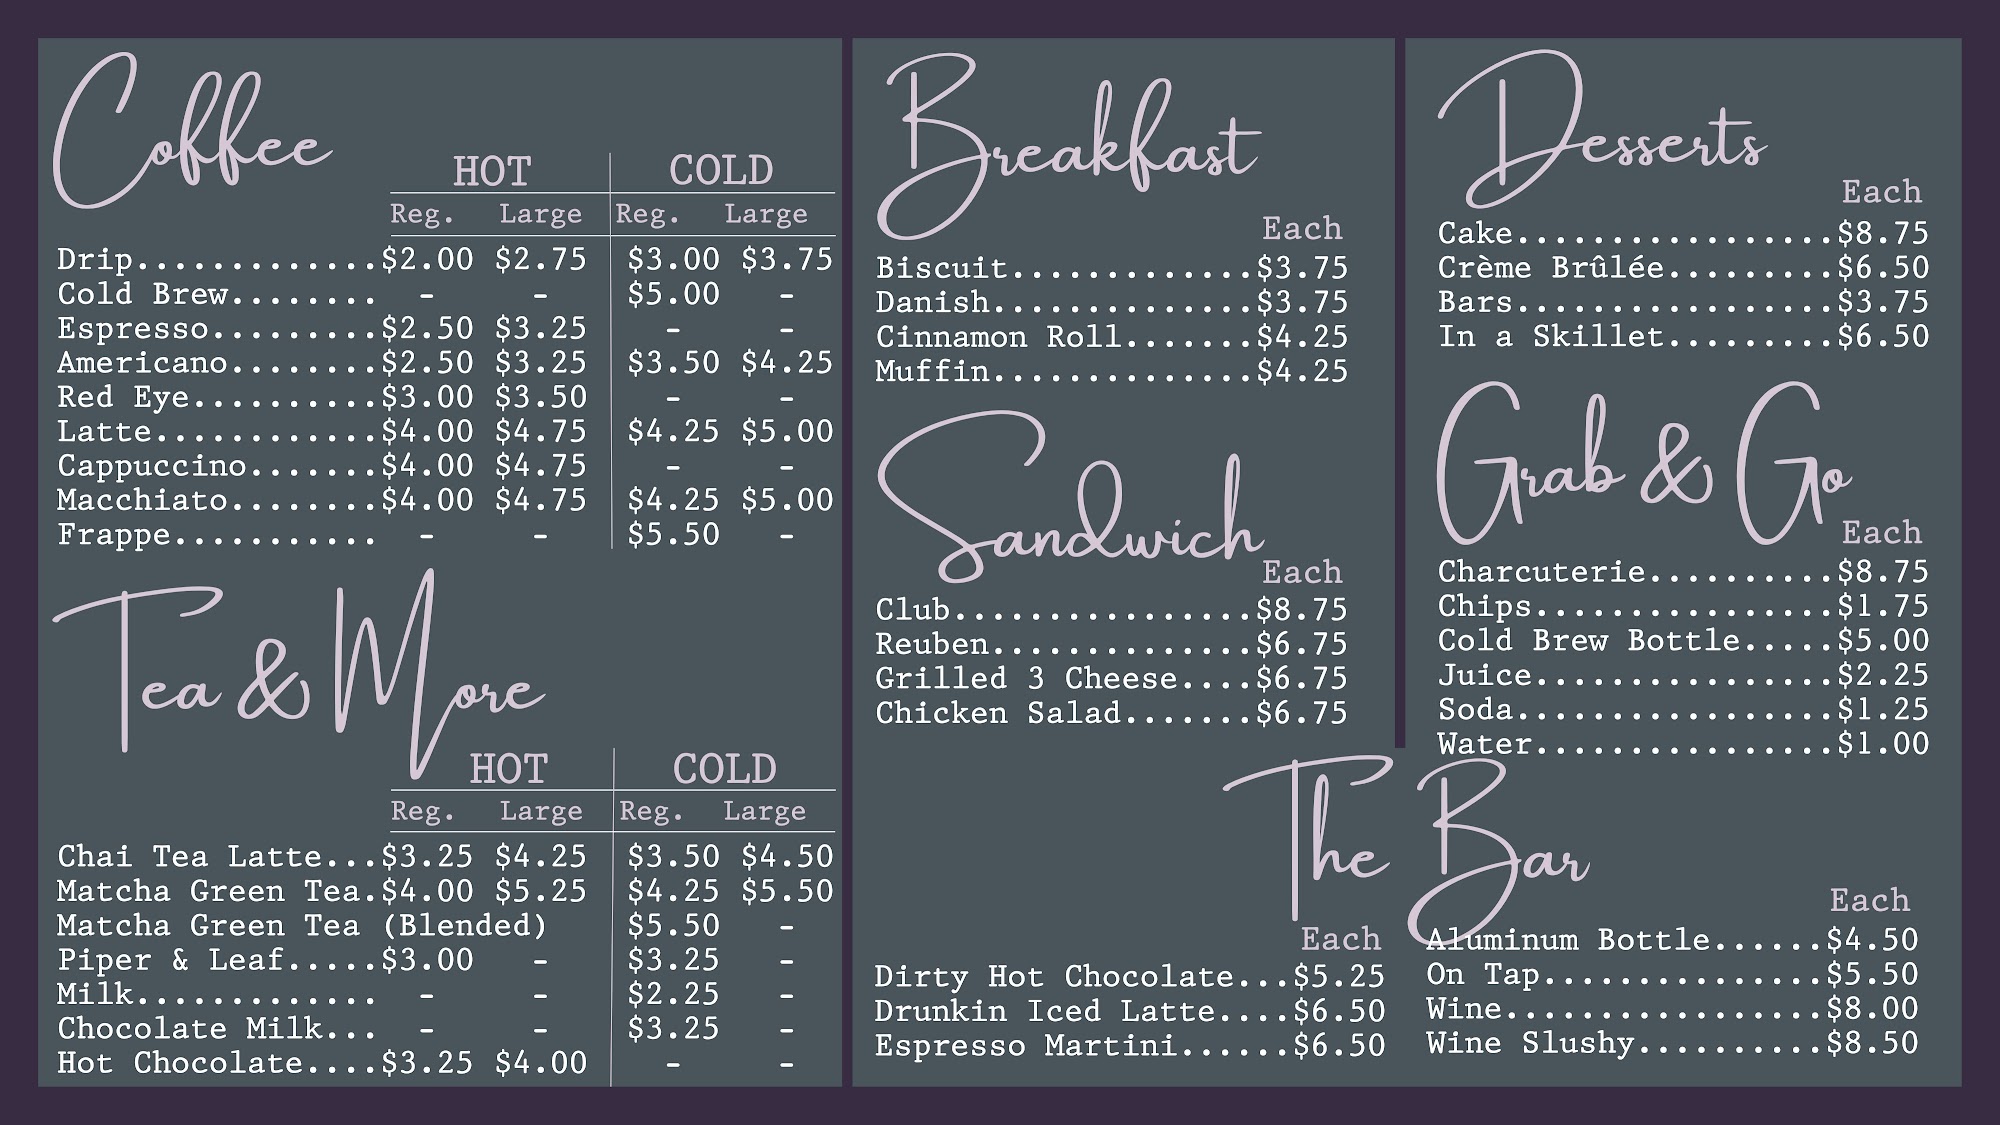 Coffee
HOT COLD
Reg. Large Reg. Large
Drip.............$2.00 $2.75 $3.00 $3.75
Cold Brew........ - - $5.00 -
Espresso.........$2.50 $3.25 - -
Americano........$2.50 $3.25 $3.50 $4.25
Red Eye..........$3.00 $3.50 - -
Latte............$4.00 $4.75 $4.25 $5.00
Cappuccino.......$4.00 $4.75 - -
Macchiato........$4.00 $4.75 $4.25 $5.00
Frappe........... - - $5.50 -
Tea & More
HOT COLD
Reg. Large Reg. Large
Chai Tea Latte...$3.25 $4.25 $3.50 $4.50
Matcha Green Tea.$4.00 $5.25 $4.25 $5.50
Matcha Green Tea (Blended) $5.50 -
Piper & Leaf.....$3.00 - $3.25 -
Milk............. - - $2.25 -
Chocolate Milk... - - $3.25 -
Hot Chocolate....$3.25 $4.00 - -
Breakfast
Each
Biscuit.............$3.75
Danish..............$3.75
Cinnamon Roll.......$4.25
Muffin..............$4.25
Sandwich
Each
Club................$8.75
Reuben..............$6.75
Grilled 3 Cheese....$6.75
Chicken Salad.......$6.75
Desserts
Each
Cake.................$8.75
Crème Brûlée.........$6.50
Bars.................$3.75
In a Skillet.........$6.50
Grab & Go
Each
Charcuterie..........$8.75
Chips................$1.75
Cold Brew Bottle.....$5.00
Juice................$2.25
Soda.................$1.25
Water................$1.00
The Bar
Each
Dirty Hot Chocolate...$5.25
Drunkin Iced Latte....$6.50
Espresso Martini......$6.50
Each
Aluminum Bottle......$4.50
On Tap...............$5.50
Wine.................$8.00
Wine Slushy..........$8.50